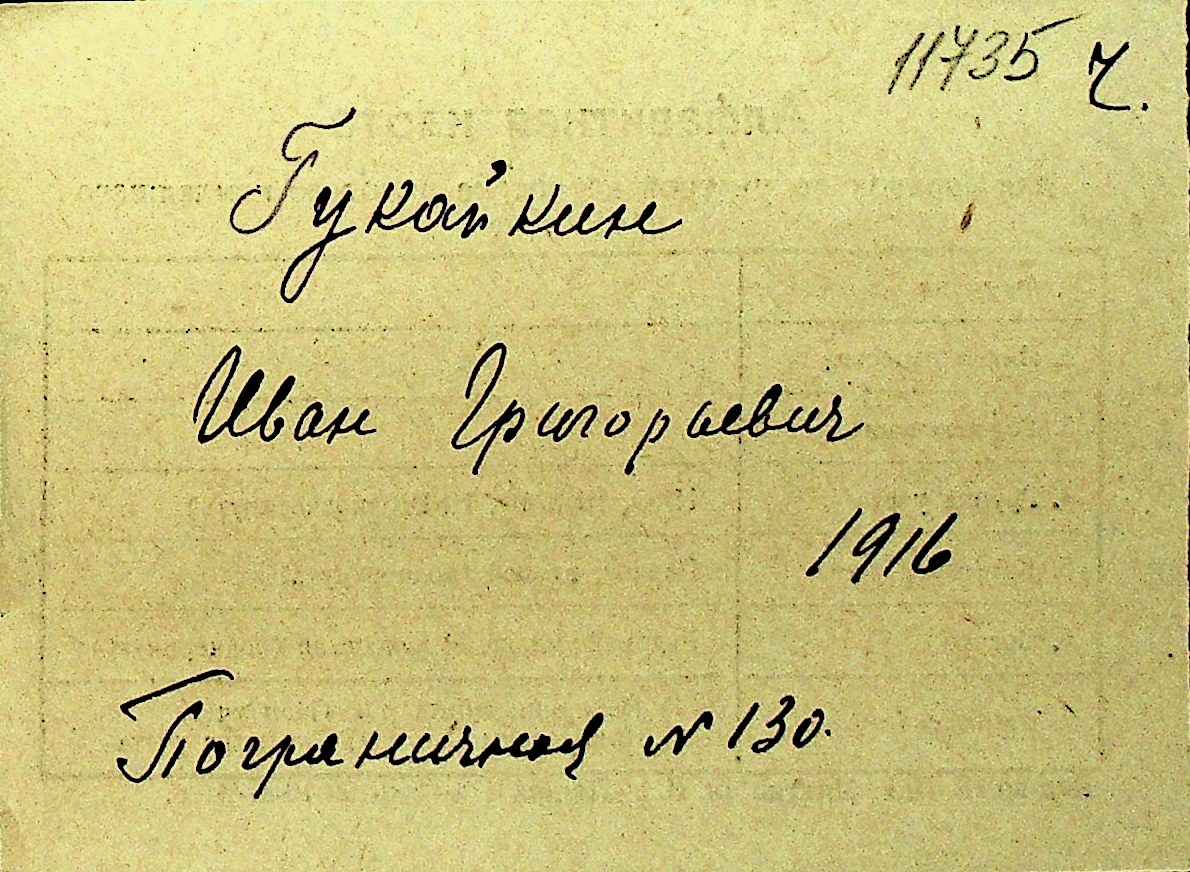 11735 Ч.
Гукайкин
Иван Григорьевич
1916
Пограничная № 130.